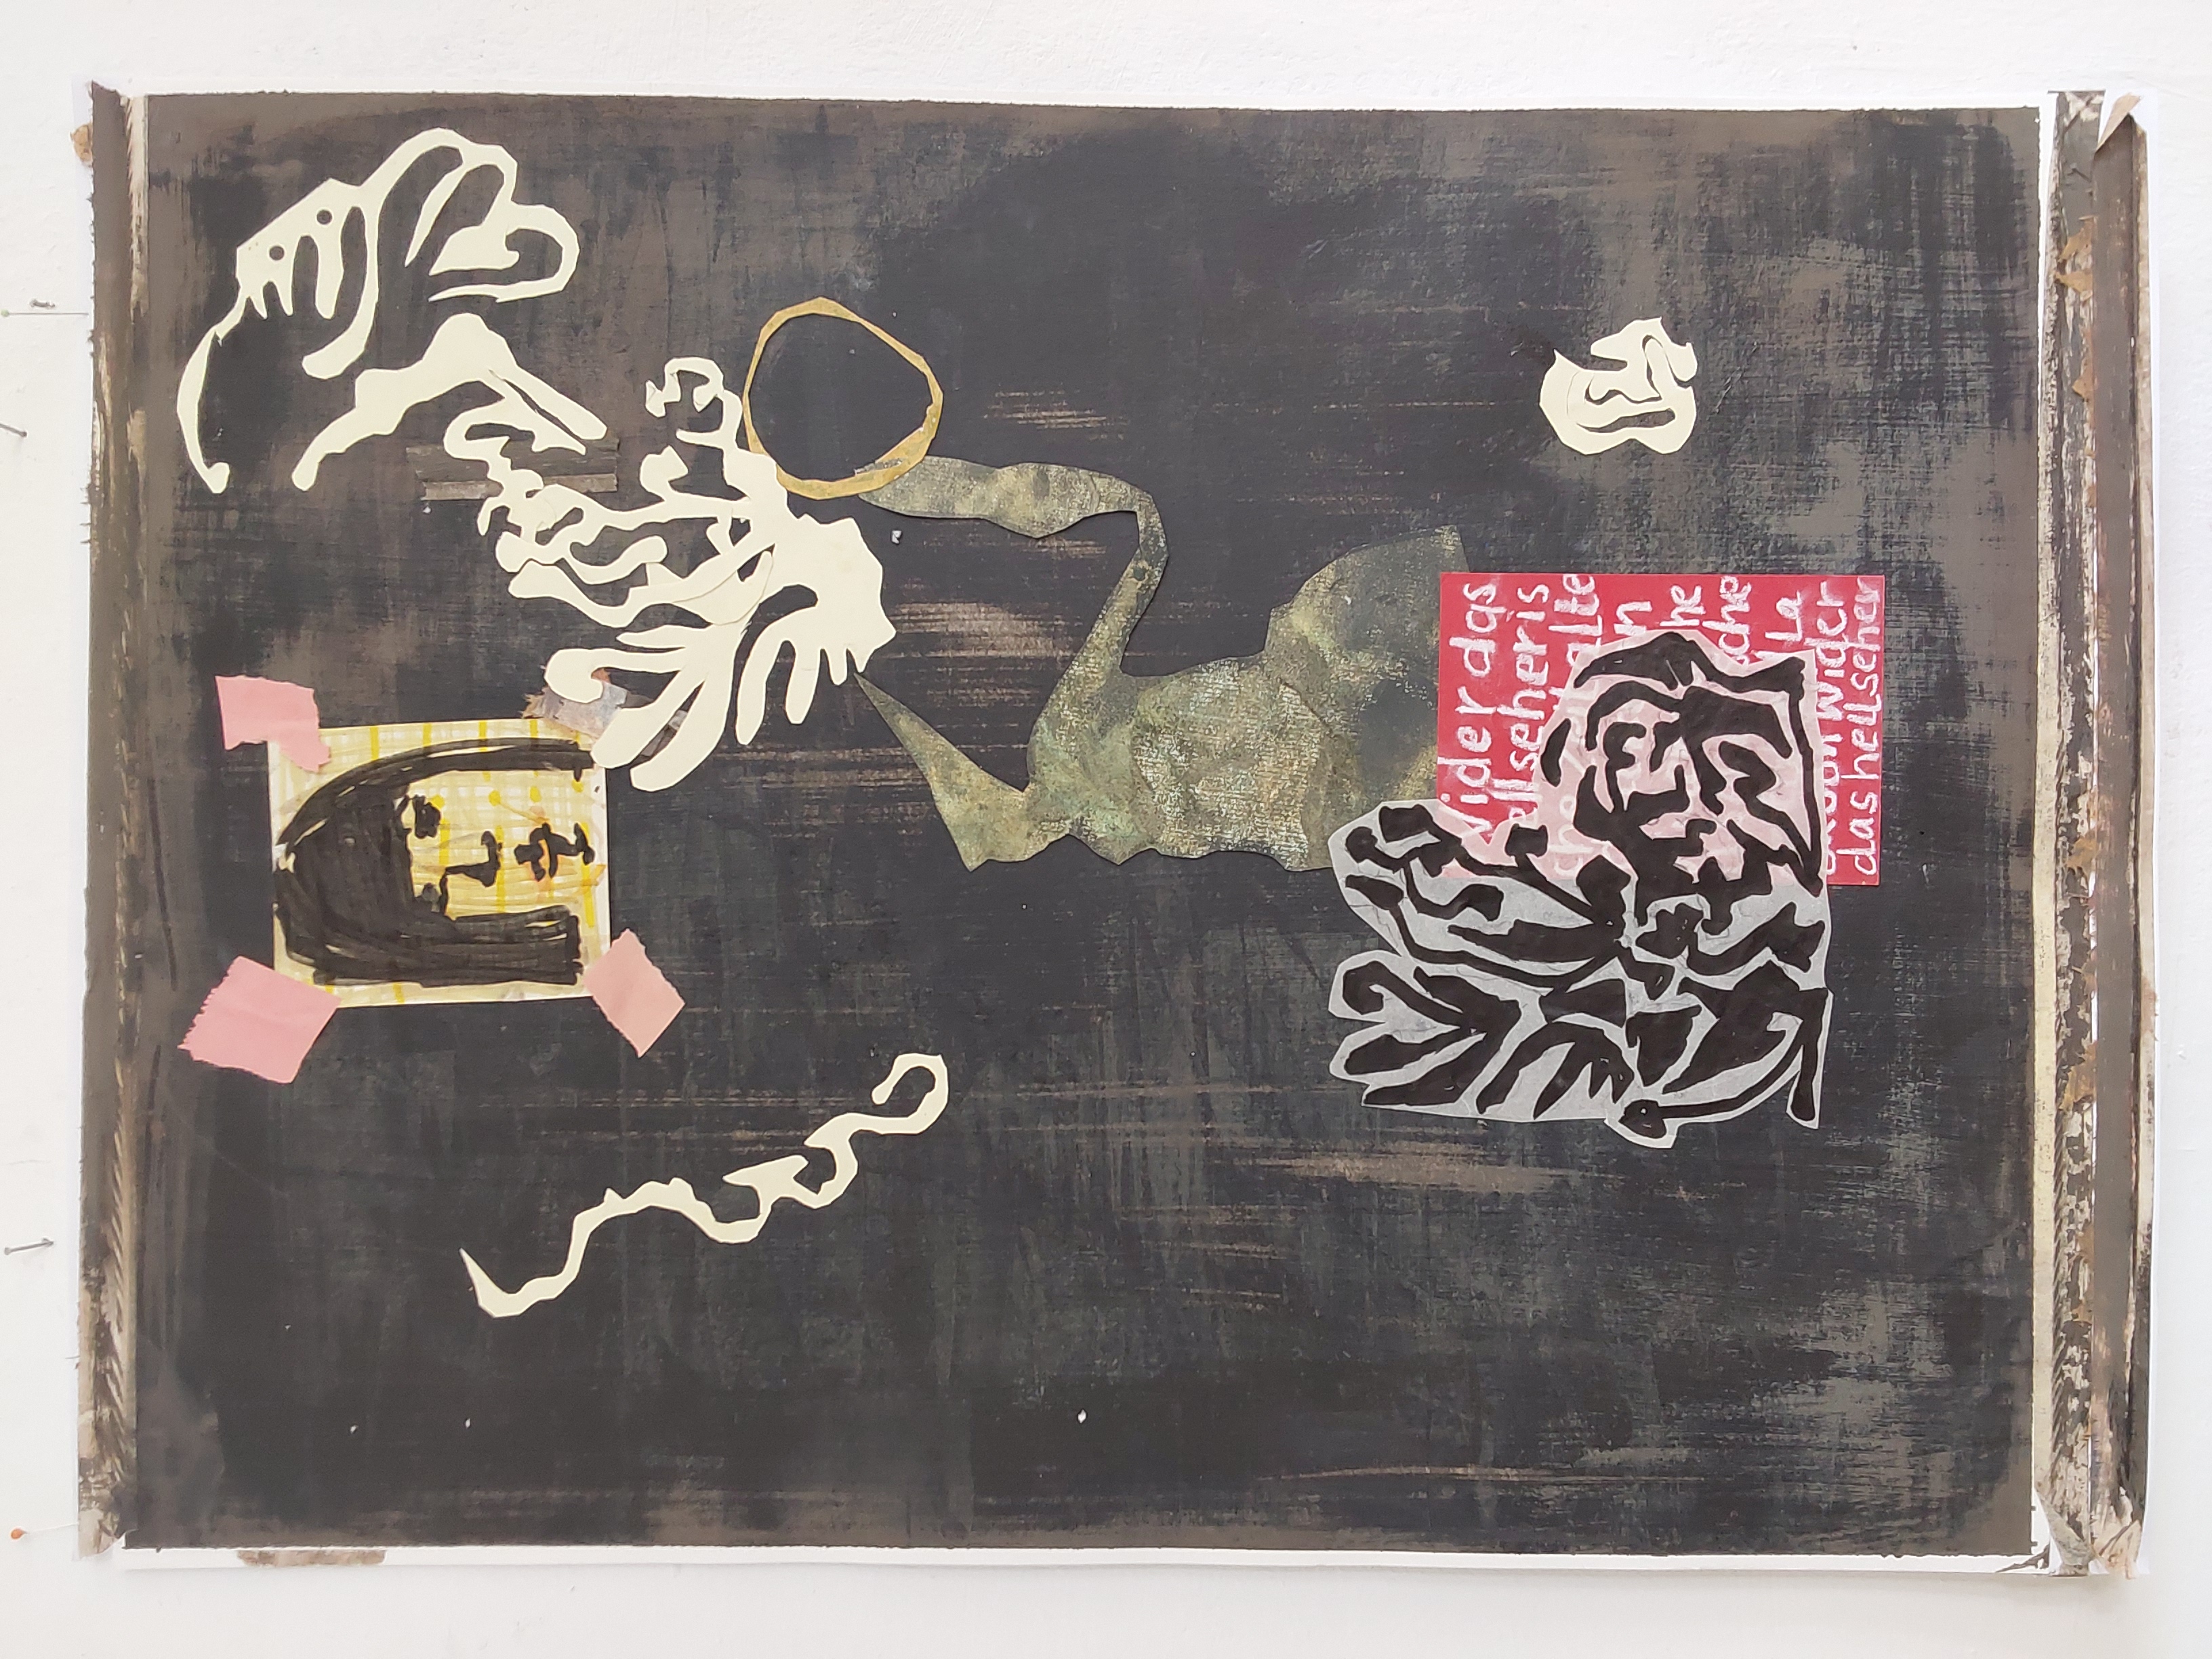 Wider das
ellseheris
che Zeitalte
n
he
che
La
okoon Wider
das hellseher